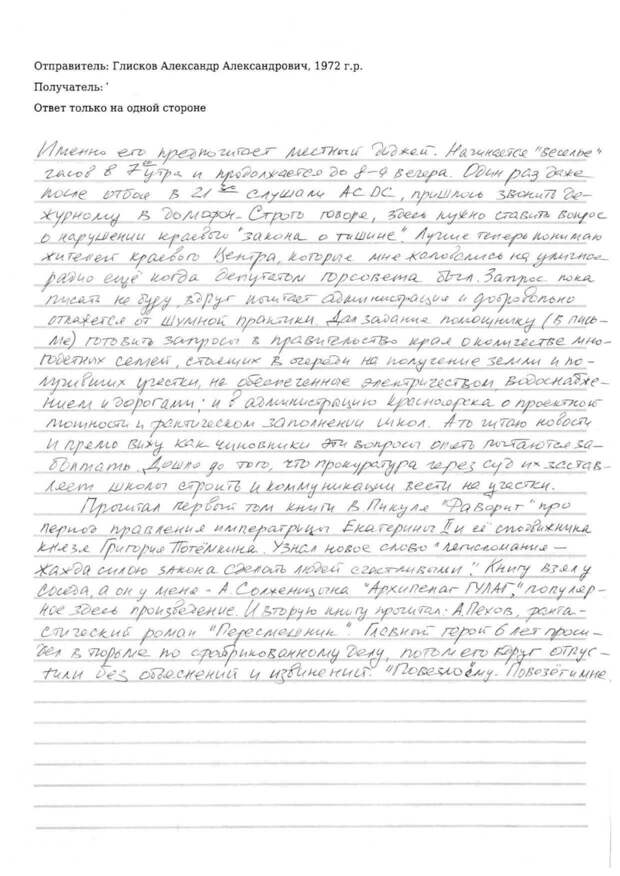 Отправитель: Глисков Александр Александрович, 1972 г.р.
Получатель: '
Ответ только на одной стороне
Именно его предпочитает местный диджей. Начинается "веселье"
часов в 7 утра и продолжается до 8-9 вечера. Один раз даже
после отбоя в 21 слушали AC DC, пришлось звонить де-
журному в домофон. Строго говоря, здесь нужно ставить вопрос
о нарушении краевого "закона о тишине". Лучше теперь понимаю
жителей краевого Центра, которые мне жаловались на уличное
радио ещё когда депутатом горсовета был. Запрос пока
писать не буду, вдруг почитает администрация и добровольно
откажется от шумной практики. Дал задание помощнику (в пись-
ме) готовить запросы в правительство края о количестве мно-
годетных семей, стоящих в очереди на получение земли и по-
лучивших участки, не обеспеченные электричеством, водоснабже-
нием и дорогами; и в администрацию Красноярска о проектной
мощности и фактическом заполнении школ. А то читаю новости
и прямо вижу как чиновники эти вопросы опять пытаются за-
болтать. Дошло до того, что прокуратура через суд их застав-
ляет школы строить и коммуникации вести на участки.
Прочитал первый том книги В Пикуля "Фаворит" про
период правления императрицы Екатерины II и её сподвижника
князя Григория Потёмкина. Узнал новое слово "легисломания –
жажда силою закона сделать людей счастливыми". Книгу взял у
соседа, а он у меня - А. Солженицына "Архипелаг ГУЛАГ", популяр-
ное здесь произведение. И вторую книгу прочитал: А. Пехов, фанта-
стический роман "Пересмешник". Главный герой 6 лет проси-
дел в тюрьме по сфабрикованному делу, потом его вдруг отпус-
тили без объяснений и извинений. "Повезло ему. Повезёт и мне.